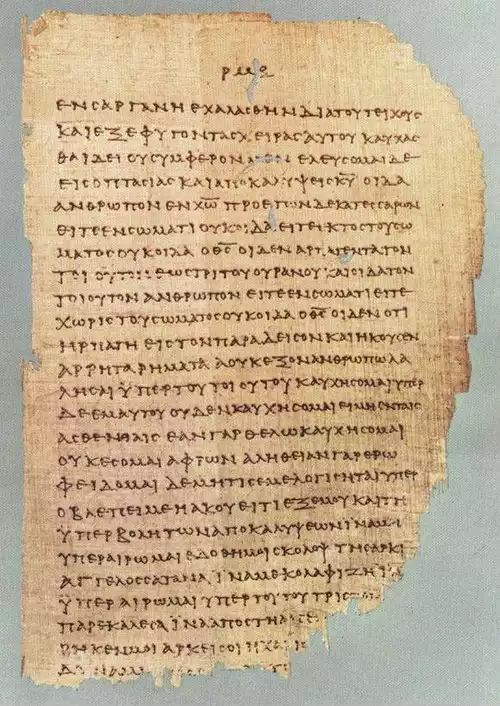 ΕΝ ϹΑΡΓΑΝΗ ΕΧΑΛΑϹΘΗΝ ΔΙΑ ΤΟΥ ΤΕΙΧΟΥϹ
ΚΑΙ ΕΞΕΦΥΓΟΝ ΤΑϹ ΧΕΙΡΑϹ ΑΥΤΟΥ ΚΑΥΧΑϹ
ΘΑΙ ΔΕΙ ΟΥ ϹΥΜΦΕΡΟΝ ΕΛΕΥϹΟΜΑΙ ΔΕ
ΕΙϹ ΟΠΤΑϹΙΑϹ ΚΑΙ ΑΠΟΚΑΛΥΨΕΙϹ Κ̅Υ̅ ΟΙΔΑ
ΑΝΘΡΩΠΟΝ ΕΝ Χ̅Ω̅ ΠΡΟ ΕΤΩΝ ΔΕΚΑΤΕϹϹΑΡΩΝ
ΕΙΤΕ ΕΝ ϹΩΜΑΤΙ ΟΥΚ ΟΙΔΑ ΕΙΤΕ ΕΚΤΟϹ ΤΟΥ ϹΩ
ΜΑΤΟϹ ΟΥΚ ΟΙΔΑ Ο Θ̅Ϲ̅ ΟΙΔΕΝ ΑΡΠΑΓΕΝΤΑ ΤΟΝ
ΤΟΙΟΥΤΟΝ ΕΩϹ ΤΡΙΤΟΥ ΟΥΡΑΝΟΥ ΚΑΙ ΟΙΔΑ ΤΟΝ
ΤΟΙΟΥΤΟΝ ΑΝΘΡΩΠΟΝ ΕΙΤΕ ΕΝ ϹΩΜΑΤΙ ΕΙΤΕ
ΧΩΡΙϹ ΤΟΥ ϹΩΜΑΤΟϹ ΟΥΚ ΟΙΔΑ Ο Θ̅Ϲ̅ ΟΙΔΕΝ ΟΤΙ
ΗΡΠΑΓΗ ΕΙϹ ΤΟΝ ΠΑΡΑΔΕΙϹΟΝ ΚΑΙ ΗΚΟΥϹΕΝ
ΑΡΡΗΤΑ ΡΗΜΑΤΑ Α ΟΥΚ ΕΞΟΝ ΑΝΘΡΩΠΩ ΛΑ
ΛΗϹΑΙ ΫΠΕΡ ΤΟΥ ΤΟΙΟΥΤΟΥ ΚΑΥΧΗϹΟΜΑΙ ΥΠΕΡ
ΔΕ ΕΜΑΥΤΟΥ ΟΥΔΕΝ ΚΑΥΧΗϹΟΜΑΙ ΕΙ ΜΗ ΕΝ ΤΑΙϹ
ΑϹΘΕΝΕΙΑΙϹ ΕΑΝ ΓΑΡ ΘΕΛΩ ΚΑΥΧΗϹΟΜΑΙ
ΟΥΚ ΕϹΟΜΑΙ ΑΦΡΩΝ ΑΛΗΘΕΙΑΝ ΓΑΡ ΕΡΩ
ΦΕΙΔΟΜΑΙ ΔΕ ΜΗ ΤΙϹ ΕΜΕ ΛΟΓΙϹΗΤΑΙ ΥΠΕΡ
Ο ΒΛΕΠΕΙ ΜΕ Η ΑΚΟΥΕΙ ΤΙ ΕΞ ΕΜΟΥ ΚΑΙ ΤΗ
ΫΠΕΡΒΟΛΗ ΤΩΝ ΑΠΟΚΑΛΥΨΕΩΝ ΪΝΑ ΜΗ
ΥΠΕΡΑΙΡΩΜΑΙ ΕΔΟΘΗ ΜΟΙ ϹΚΟΛΟΨ ΤΗ ϹΑΡΚΙ
ΑΓΓΕΛΟϹ ϹΑΤΑΝΑ ΪΝΑ ΜΕ ΚΟΛΑΦΙΖΗ ΪΝΑ
ΫΠΕΡΑΙΡΩΜΑΙ ΥΠΕΡ ΤΟΥΤΟΥ ΤΡΙϹ
ΠΑΡΕΚΑΛΕϹΑ ΪΝΑ ΑΠΟϹΤΗ
ΡΗΚΕΝ ΜΟΙ ΑΡΚΕΙ ϹΟΙ Η ΧΑΡΙϹ